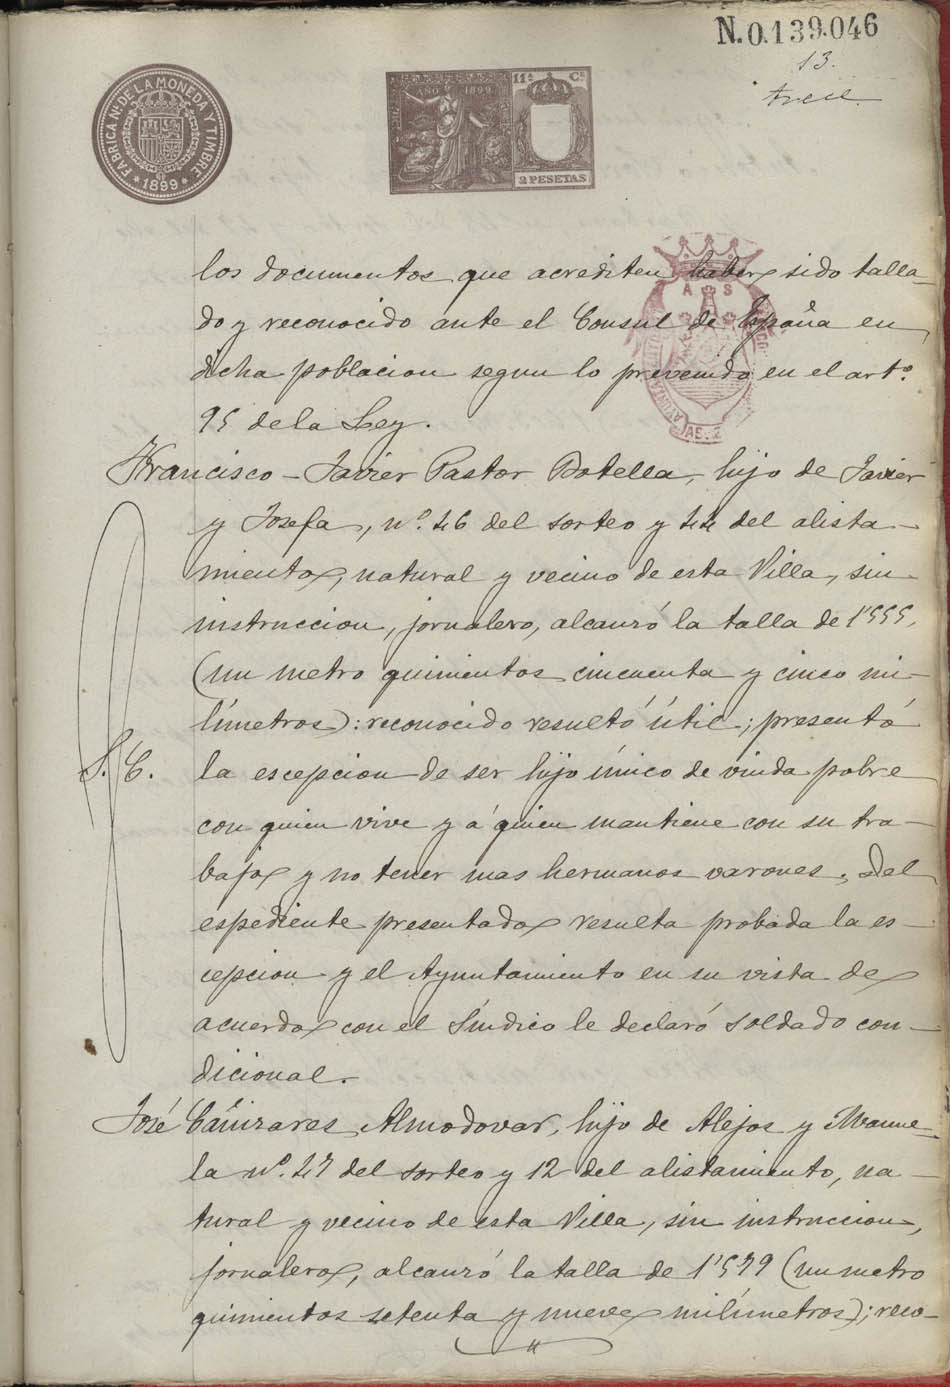 N.0.139.046
13.
trece
FABRICA NL. DE LA MONEDA Y TIMBRE
* 1899 *
AÑO 1899
11ª Cª
2 PESETAS
A S
los documentos que acrediten haber sido talla-
do y reconocido ante el Consul de España en
dicha poblacion segun lo prevenido en el artº.
95 de la Ley.
Francisco-Javier Pastor Botella, hijo de Javier
y Josefa, nº. 46 del sorteo y 44 del alista-
miento, natural y vecino de esta Villa, sin
instruccion, jornalero, alcanzó la talla de 1'555,
(un metro quinientos cincuenta y cinco mi-
límetros): reconocido resultó útil; presentó
S. C.
la escepcion de ser hijo único de viuda pobre
con quien vive y á quien mantiene con su tra-
bajo y no tener mas hermanos varones. Del
espediente presentado resulta probada la es-
cepcion y el Ayuntamiento en su vista de
acuerdo con el Síndico le declaró soldado con-
dicional.
José Cañizares Almodovar, hijo de Alejos y Manue-
la nº. 47 del sorteo y 12 del alistamiento, na-
tural y vecino de esta Villa, sin instruccion,
jornalero, alcanzó la talla de 1'579 (un metro
quinientos setenta y nueve milímetros); reco-